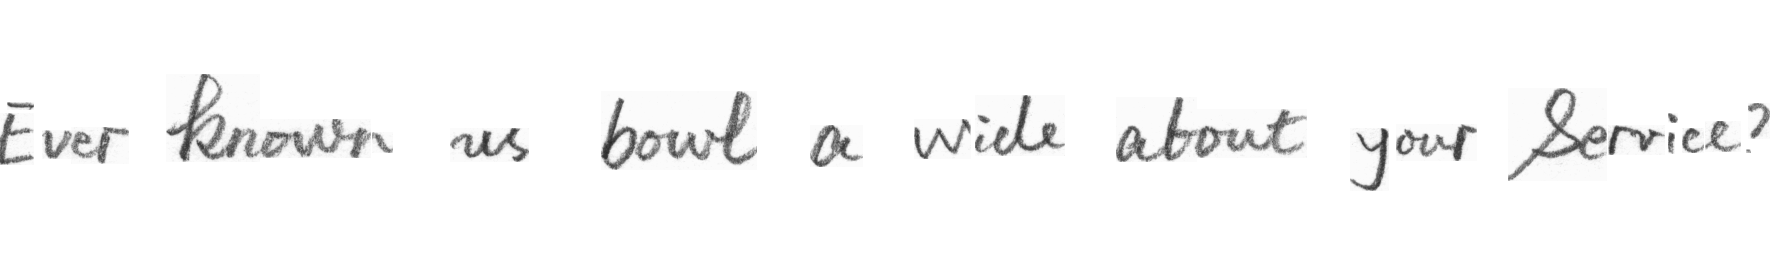 Ever known us bowl a wide about your Service?